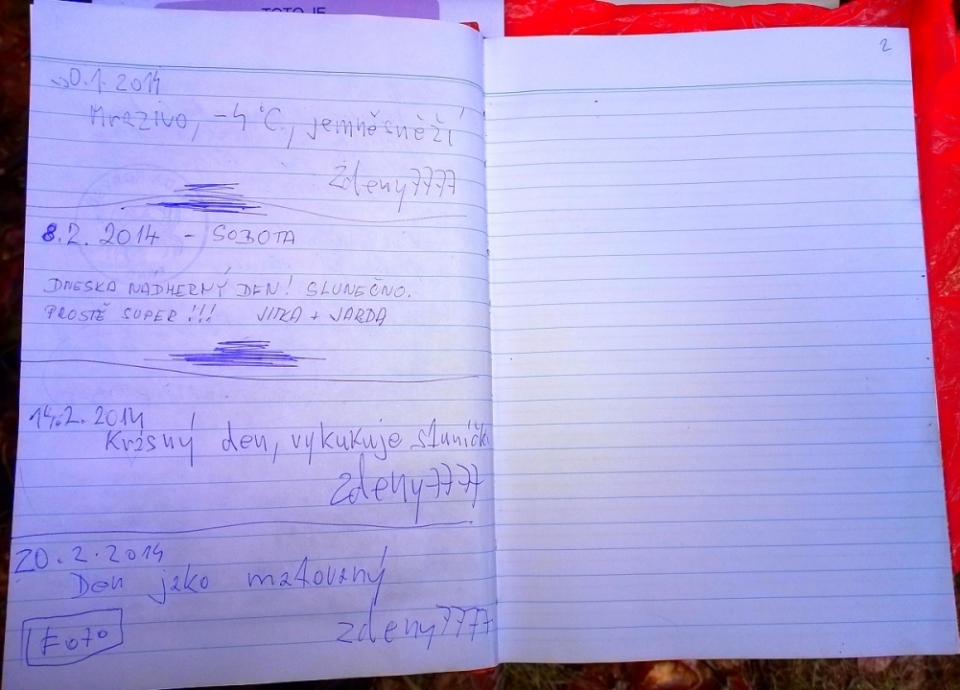 TOTO JE
2
30.1.2014
Mrazivo, -4°C, jemně sněží
zdeny7777
8.2. 2014 - SOBOTA
DNESKA NÁDHERNÝ DEN! SLUNEČNO.
PROSTĚ SUPER!!! JITKA + JARDA
14.2.2014
Krásný den, vykukuje sluníčk
zdeny7777
20.2.2014
Den jako malovaný
FOTO
zdeny7777